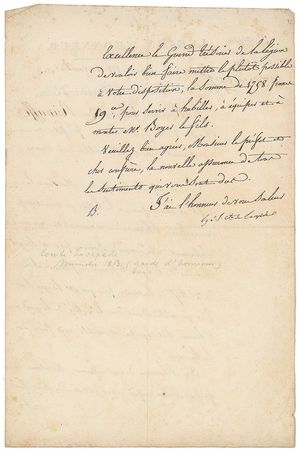 Excellence le Grand trésorier de la légion
de vouloir bien faire mettre le plutôt possible
à votre disposition, la somme de 1758 francs
19 cs pour servir à habiller, à équiper et à
monter Mr. Boyer le fils.
Veuillez bien agréer, Monsieur le préfet et
cher confrère, la nouvelle assurance de tous
les sentiments qui vous sont dus.
J'ai l'honneur de vous saluer
B.
Comte Lacépède
(garde d'honneur)